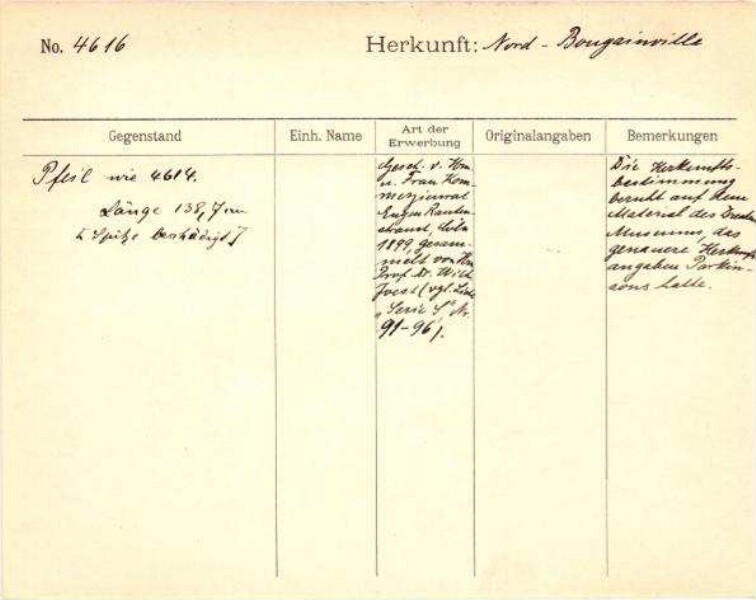 No. 4616 Herkunft: Nord-Bougainville
Gegenstand
Einh. Name
Art der
Erwerbung
Originalangaben
Bemerkungen
Pfeil wie 4614.
Länge 138,7 cm
[Spitze beschädigt]
Gesch. v. Hrn
u. Frau Kom-
merzienrat
Eugen Rauten-
strauch, Cöln
1899, gesam-
melt von Hrn
Prof. Dr. Wilh
Joest (vgl. Liste
„Serie S" Nr.
91-96).
Die Herkunfts-
bestimmung
beruht auf dem
Material des Dresdn
Museums, das
genauere Herkunfts
angaben Parkin-
sons hatte.